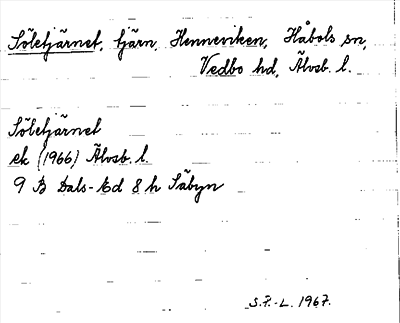 Söletjärnet, tjärn, Henneviken, Håbols sn,
Vedbo hd, Älvsb. l.
Söletjärnet
ek (1966) Älvsb. l.
9 B Dals-Ed 8 h Säbyn
S.P.-L. 1967.